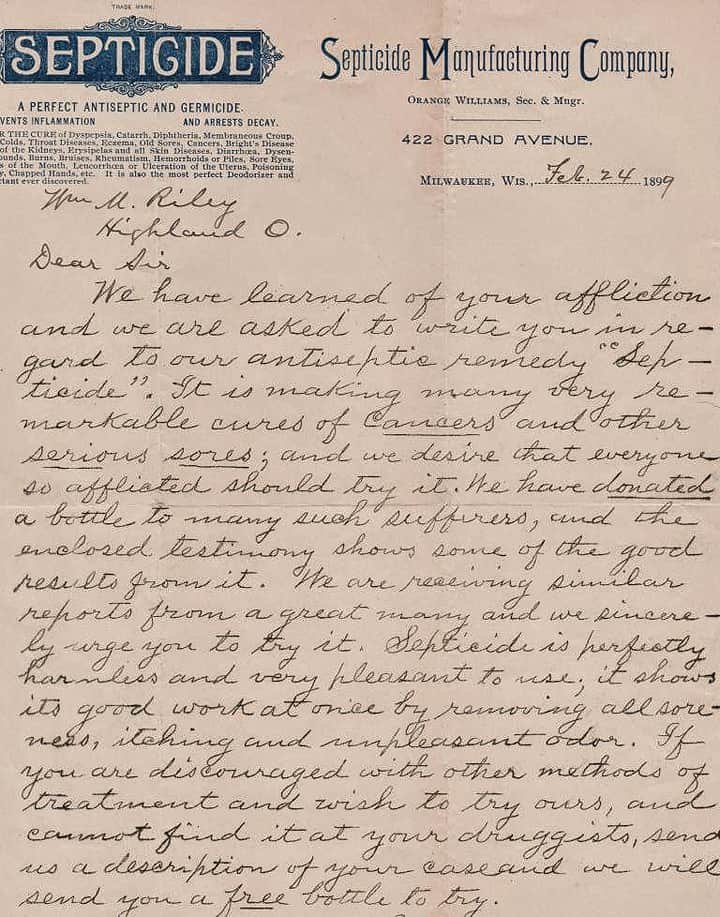 TRADE MARK.
SEPTICIDE
A PERFECT ANTISEPTIC AND GERMICIDE.
VENTS INFLAMMATION AND ARRESTS DECAY.
R THE CURE of Dyspepsia, Catarrh, Diphtheria, Membraneous Croup,
Colds, Throat Diseases, Eczema, Old Sores, Cancers, Bright's Disease
of the Kidneys, Erysipelas and all Skin Diseases, Diarrhœa, Dysen-
ounds, Burns, Bruises, Rheumatism, Hemorrhoids or Piles, Sore Eyes,
s of the Mouth, Leucorrhœa or Ulceration of the Uterus, Poisoning
y, Chapped Hands, etc. It is also the most perfect Deodorizer and
ctant ever discovered.
Septicide Manufacturing Company,
ORANGE WILLIAMS, SEC. & MNGR.
422 GRAND AVENUE.
MILWAUKEE, WIS., Feb. 24 1899
Wm M. Riley
Highland O.
Dear Sir
We have learned of your affliction
and we are asked to write you in re-
gard to our antiseptic remedy "Sep-
ticide". It is making many very re-
markable cures of Cancers and other
serious sores; and we desire that everyone
so afflicted should try it. We have donated
a bottle to many such sufferers, and the
enclosed testimony shows some of the good
results from it. We are receiving similar
reports from a great many and we sincere-
ly urge you to try it. Septicide is perfectly
harmless and very pleasant to use; it shows
its good work at once by removing all sore-
ness, itching and unpleasant odor. If
you are discouraged with other methods of
treatment and wish to try ours, and
cannot find it at your druggists, send
us a description of your case and we will
send you a free bottle to try.